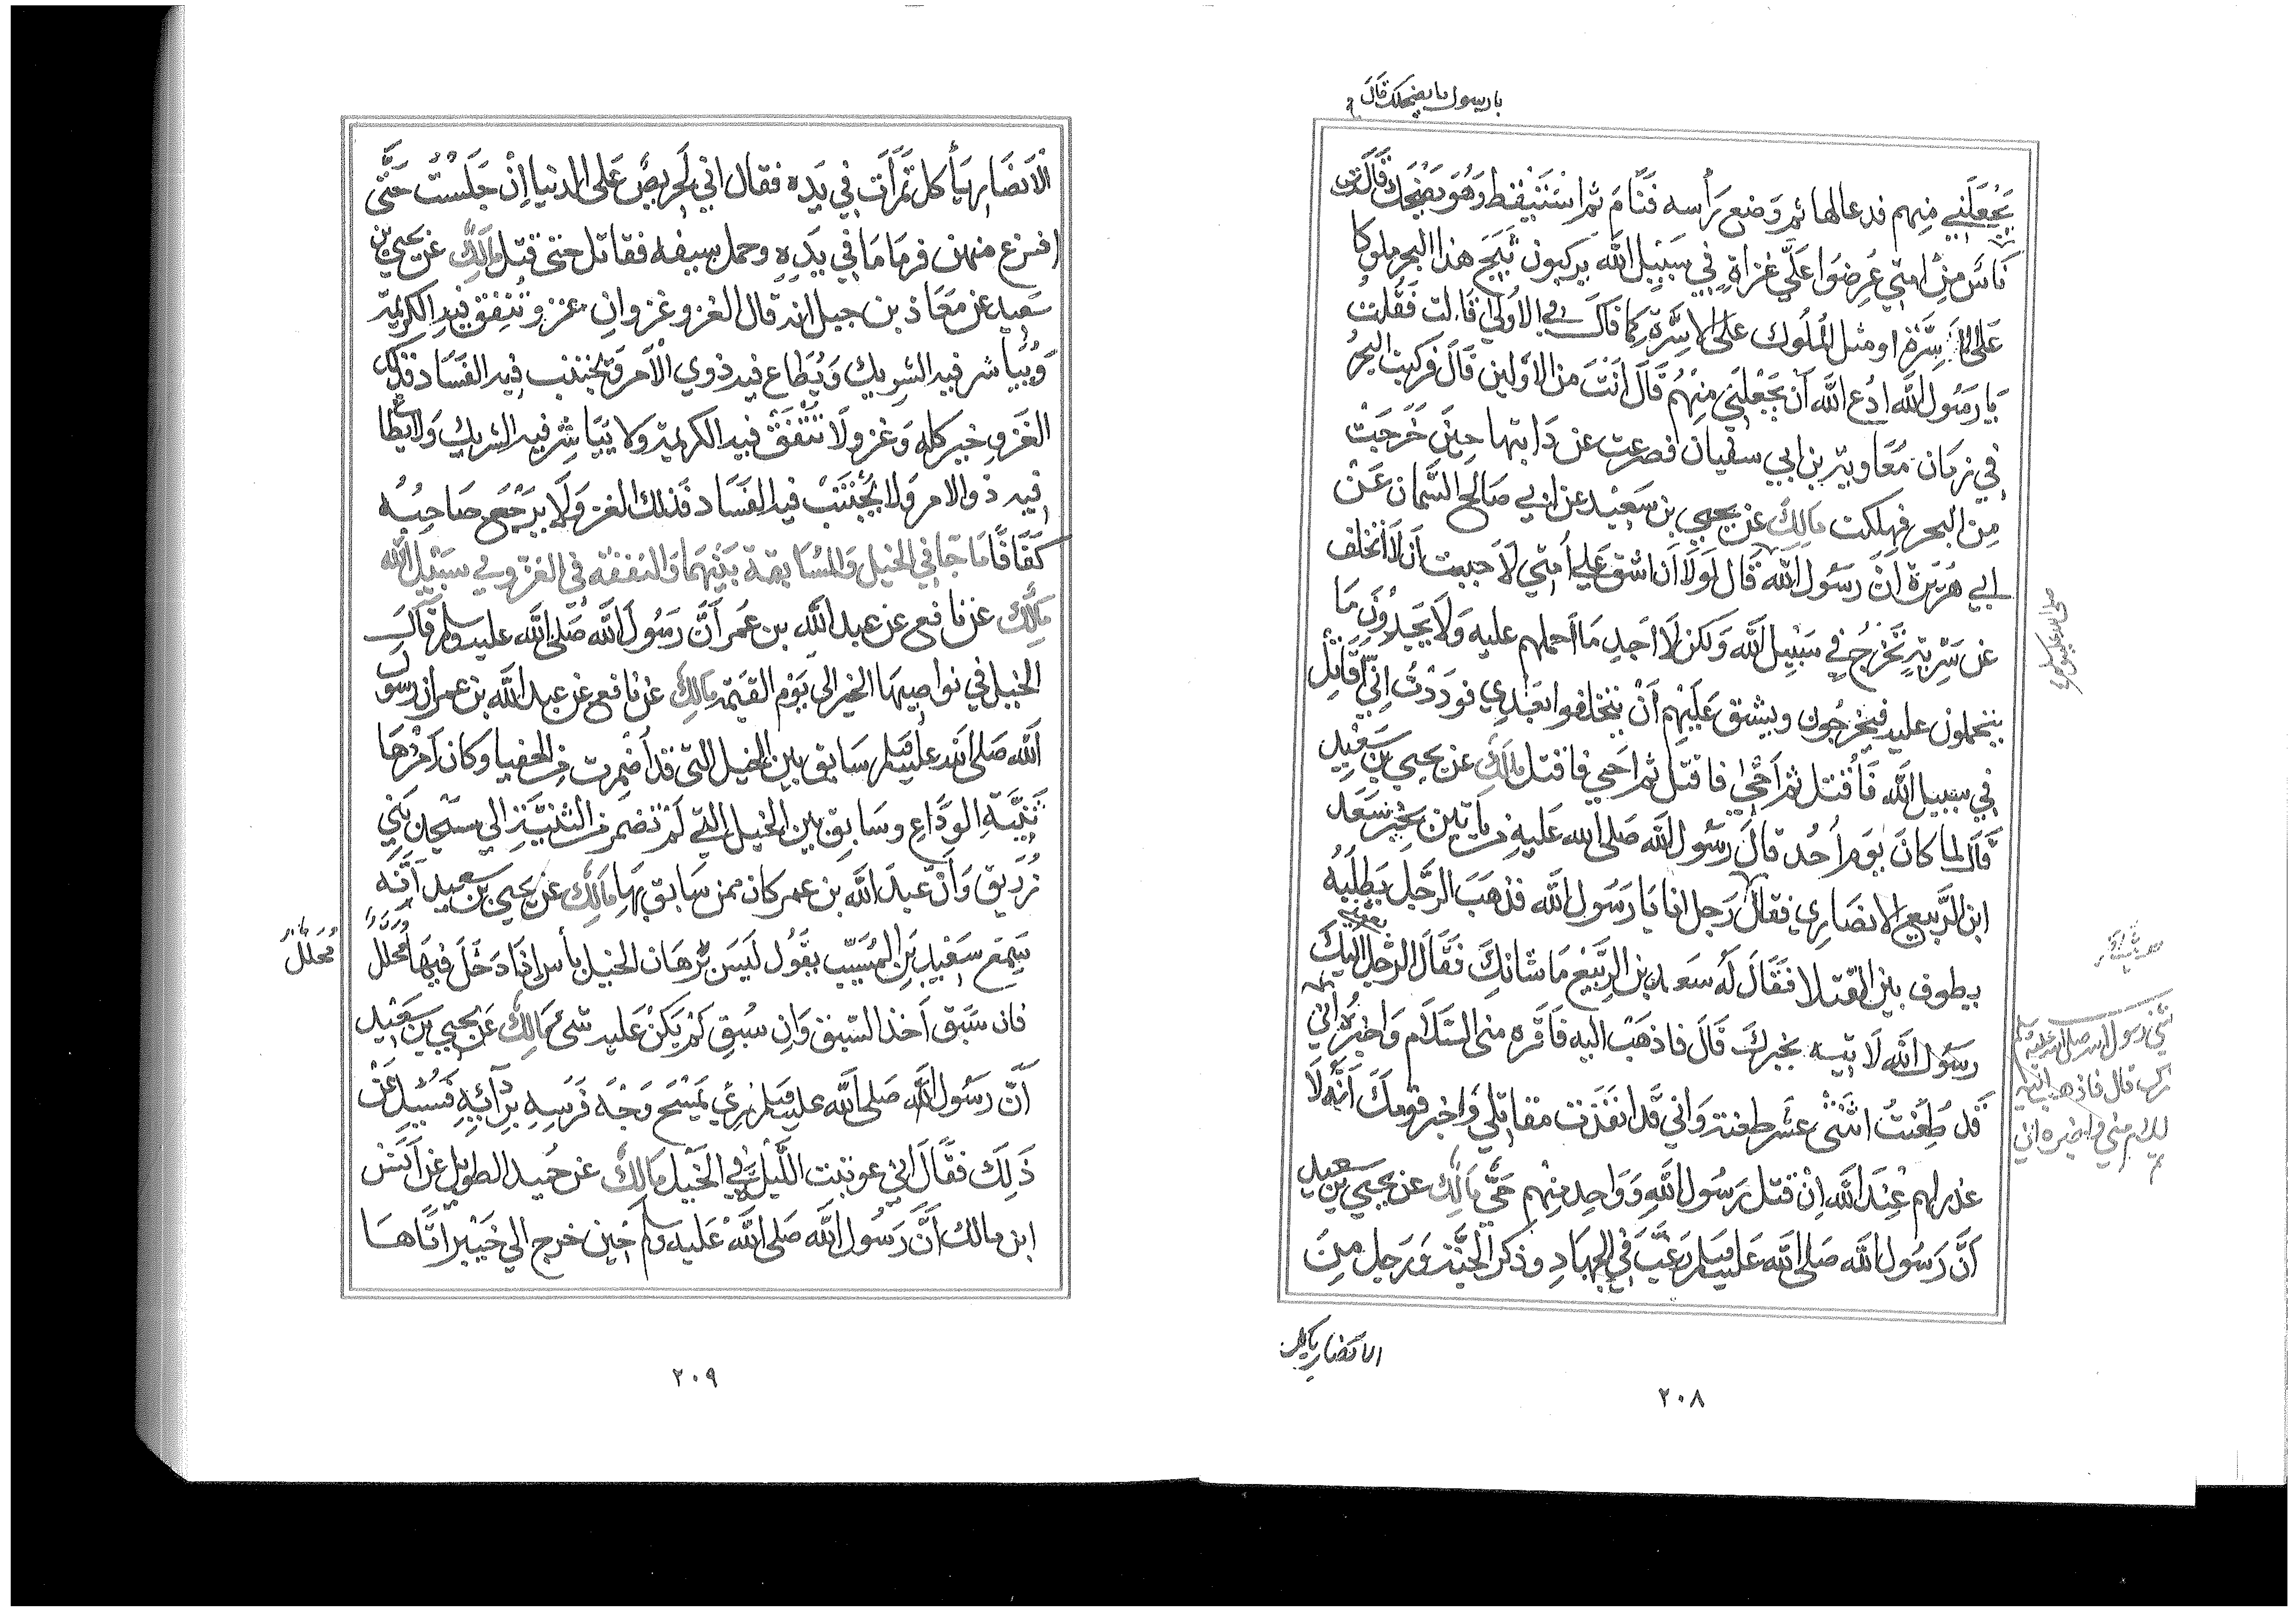 يا رسول ما يضحكك قال
يَجْعَلَنِي مِنهم فدعا لها ثم وَضع رَأسه فَنَامَ ثم اسْتَيْقظ وَهُوَ يَضْحَك قَالَت
نَاسٌ مِنْ امتي عُرِضوا عَلَّي غزاة فِي سَبِيل الله يركبون ثَبَجَ هذا البحر ملوكا
عَلى الاسِرَّةِ او مثل المُلُوك على الاسِرَّةِ كما قال في الاُولى قَالت فَقُلت
يَا رَسُول الله ادُع الله اَنْ يَجْعَلَنِي مِنْهُم قَالَ اَنْتَ من الاَوَّلين قَالَ فَركبت البحرَ
فِي زمَان مُعَاوية بن ابي سفيان فصرعت عن دَابتها حِينَ خَرَجَتْ
مِنَ البحر فهلكت مَالِكٌ عن يحيي بن سَعِيْد عن ابي صَالح السَّمان عَنْ
ابي هُرَيْرَة اَنْ رَسُول الله قَال لَولَا اَن اشق عَلي اُمَّتِي لَاَحببت اَن لَا اتخلف
صلى الله عليه وسلم
عن سَرِيَّةٍ تَخْرُجُ فِي سَبِيل الله وَلكن لَا اَجِد مَا اَحملهم عليه وَلَا يَجِدُونَ مَا
يتحملون عليه فيخرجُون ويشق عَلَيْهِم اَنْ يتخلفوا بَعْدِي فودَدْتُ اني اُقَاتِل
فِي سبيل الله فَاُقْتَل ثم اُحْيَى فاقتل ثم احيي فاقتل مَالِكٌ عن يحيي بْن سَعِيْدٍ
قَال لما كَانَ يَوم اُحُد قَالَ رَسُول الله صَلى الله عَليهِ من ياتين بخبر سَعد
ابن الرَّبيع الانصَاري فقال رَجل انا يَا رَسُول الله فذهَبَ الرَّجل يَطلبُهُ
يطوف بين القتلا فَقَالَ لَه سَعد بن الرَّبيع مَا شانكَ فَقَالَ الرَّجل اليك
رسول الله لَاتيه بخبرك قَالَ فاذهَبْ اليه فَاَقره مني السَّلَام وَاخبرهُ اني
قَد طُعِنتُ اثنَتَي عَشَر طعنة وَاني قَد انفذت مقاتلي وَاخبر قومَك اَنَّه لَا
عذر لهم عِنْدَ الله اِنْ قتل رَسُول اللهِ وَوَاحِد مِنْهم حَيٌّ مَالِكٌ عن يَحيي بن سعيد
اَنَّ رَسُول الله صَلى الله عَليه وسلم رَغَّبَ فِي الجِهَادِ وذكر الجَنَّة وَرَجل مِنَ
الانصَار ياكل
٢٠٨
الْاَنصَارِ يَأكل تَمَرَاتٍ فِي يَدِه فقال اني لَحَرِيصٌ عَلى الدنيا اِنْ جَلَسْتُ حَتَّى
افرغ منهن فرمَا مَا فِي يَدِهِ وحمل بسيفه فقاتل حتى قتل مَالِكٌ عن يحيي بن
سَعيد عن مَعَاذ بن جبل انه قال الغزو غزوانِ فغزو تُنْفق فيهِ الكريمة
وَيُيَاسَر فيه الشريك وَيُطَاع فيه ذوي الْاَمر وَيجتنب فيه الفسَاد فذلك
الغَزو خير كله وَغزو لَا تُنْفَق فيه الكريمة ولا يُيَاسَر فيه الشريك وَلَا يُطاع
فيه ذو الامر وَلا يُجْتَنَب فيه الفَسَاد فَذلك الغزو لَا يَرْجَع صَاحِبُه
كَفَافًا مَا جَا في الخيل وَالمسَابقة بَيْنهمَا وَالنفقة في الغزو في سَبِيل الله
مَالِكٌ عن نافع عن عبد الله بن عُمر اَنَّ رَسُولَ الله صَلى الله عليه وسلم قَالَ
الخيل في نواصيهَا الخير الى يَوْم القيمة مَالِكٌ عن نافع عن عبد الله بن عمر ان رسول
الله صَلى الله عليه وسلم سَابق بين الخيل التي قد اُضمرت من الحفيا وكان اَمَدُهَا
ثَنِيَّة الوَدَاعِ وسَابق بين الخيل التي لَمْ تضمر من الثنيَّة الي مسْجد بَنِي
زُرَيق وَاَنّ عبدَ الله بن عمر كان ممن سَابق بهَا مَالِكٌ عن يَحيي بن سَعيد اَنَّه
سَمِعَ سَعيد بْنَ المُسَيّب يَقُول لَيْسَ بِرهَان الخيل بأس اذَا دَخَلَ فِيهَا مُحَلل
مُحَلِّلٌ
فان سَبَق اَخذ السَّبق وَاِن سُبِق لَمْ يَكُنْ عَليه شئ مَالِكٌ عَنْ يحيي بن سَعِيْد
اَنَّ رَسُول الله صَلى الله عليه وسلم رُئي يَمْسَح وَجْهَ فَرَسِهِ بِرِدَائِهِ فَسُئِل عَنْ
ذَلِكَ فقَالَ اني عوتبت اللَّيْلَةَ فِي الخَيْل مَالِكٌ عن حُميد الطويل عن اَنَسْ
ابن مالك اَنَّ رَسُول الله صَلى الله عَليه وسلم حين خرج الي خَيْبر اتَاهَا
٢٠٩